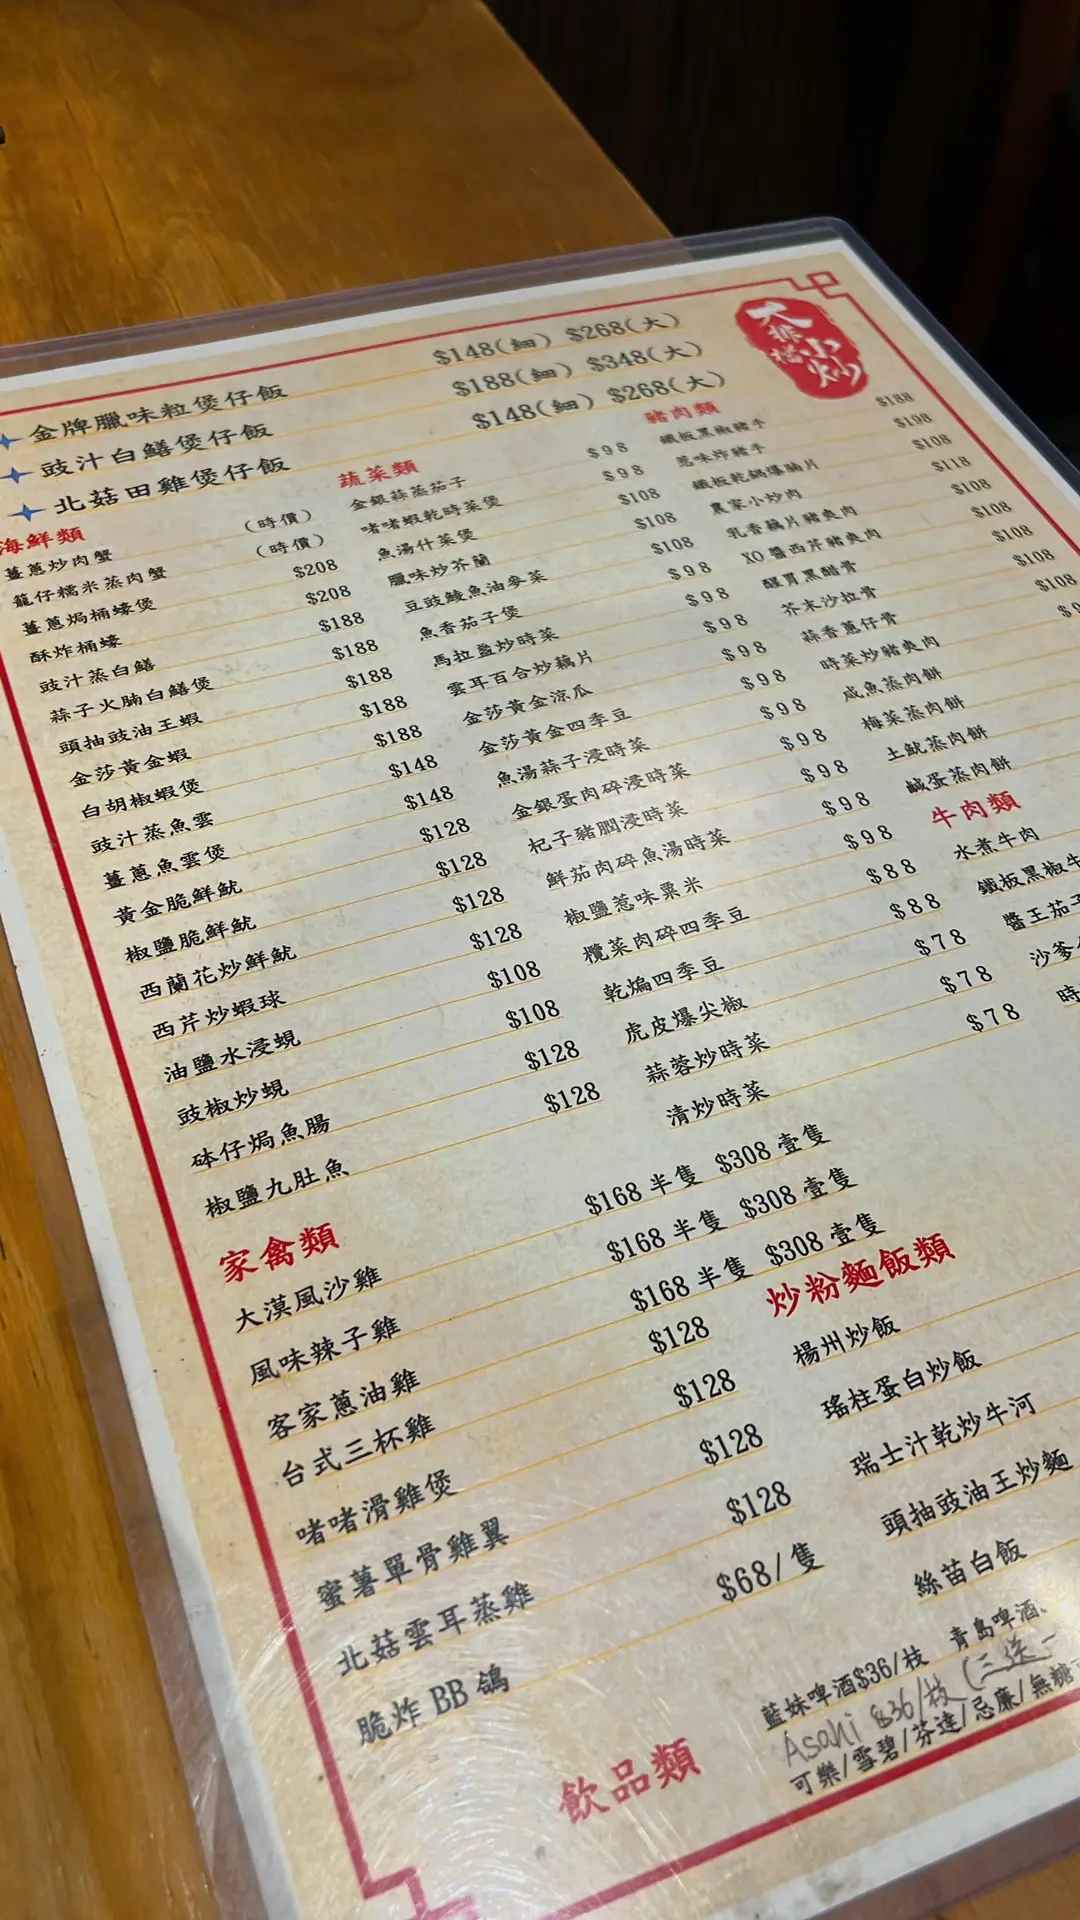 大排檔小炒
金牌臘味粒煲仔飯 $148(細) $268(大)
豉汁白鱔煲仔飯 $188(細) $348(大)
北菇田雞煲仔飯 $148(細) $268(大)
海鮮類
薑蔥炒肉蟹 (時價)
籠仔糯米蒸肉蟹 (時價)
薑蔥焗桶蠔煲 $208
酥炸桶蠔 $208
豉汁蒸白鱔 $188
蒜子火腩白鱔煲 $188
頭抽豉油王蝦 $188
金莎黃金蝦 $188
白胡椒蝦煲 $188
豉汁蒸魚雲 $148
薑蔥魚雲煲 $148
黃金脆鮮魷 $128
椒鹽脆鮮魷 $128
西蘭花炒鮮魷 $128
西芹炒蝦球 $128
油鹽水浸蜆 $108
豉椒炒蜆 $108
砵仔焗魚腸 $128
椒鹽九肚魚 $128
蔬菜類
金銀蒜蒸茄子 $98
啫啫蝦乾時菜煲 $98
魚湯什菜煲 $108
臘味炒芥蘭 $108
豆豉鯪魚油麥菜 $108
魚香茄子煲 $98
馬拉盞炒時菜 $98
雲耳百合炒藕片 $98
金莎黃金涼瓜 $98
金莎黃金四季豆 $98
魚湯蒜子浸時菜 $98
金銀蛋肉碎浸時菜 $98
杞子豬膶浸時菜 $98
鮮茄肉碎魚湯時菜 $98
椒鹽惹味粟米 $98
欖菜肉碎四季豆 $88
乾煸四季豆 $88
虎皮爆尖椒 $78
蒜蓉炒時菜 $78
清炒時菜 $78
豬肉類
鐵板黑椒豬手 $188
惹味炸豬手 $108
鐵板乾鍋爆腩片 $108
農家小炒肉 $118
乳香藕片豬爽肉 $108
XO醬西芹豬爽肉 $108
醒胃黑醋骨 $108
芥末沙拉骨 $108
蒜香蔥仔骨 $108
時菜炒豬爽肉
咸魚蒸肉餅
梅菜蒸肉餅
土魷蒸肉餅
鹹蛋蒸肉餅
牛肉類
水煮牛肉
鐵板黑椒牛
醬王茄子
沙爹
時
家禽類
大漠風沙雞 $168半隻 $308壹隻
風味辣子雞 $168半隻 $308壹隻
客家蔥油雞 $168半隻 $308壹隻
台式三杯雞 $128
啫啫滑雞煲 $128
蜜薯單骨雞翼 $128
北菇雲耳蒸雞 $128
脆炸BB鴿 $68/隻
炒粉麵飯類
楊州炒飯
瑤柱蛋白炒飯
瑞士汁乾炒牛河
頭抽豉油王炒麵
絲苗白飯
飲品類
藍妹啤酒$36/枝 青島啤酒
Asahi $36/枝 (三送一
可樂/雪碧/芬達/忌廉/無糖